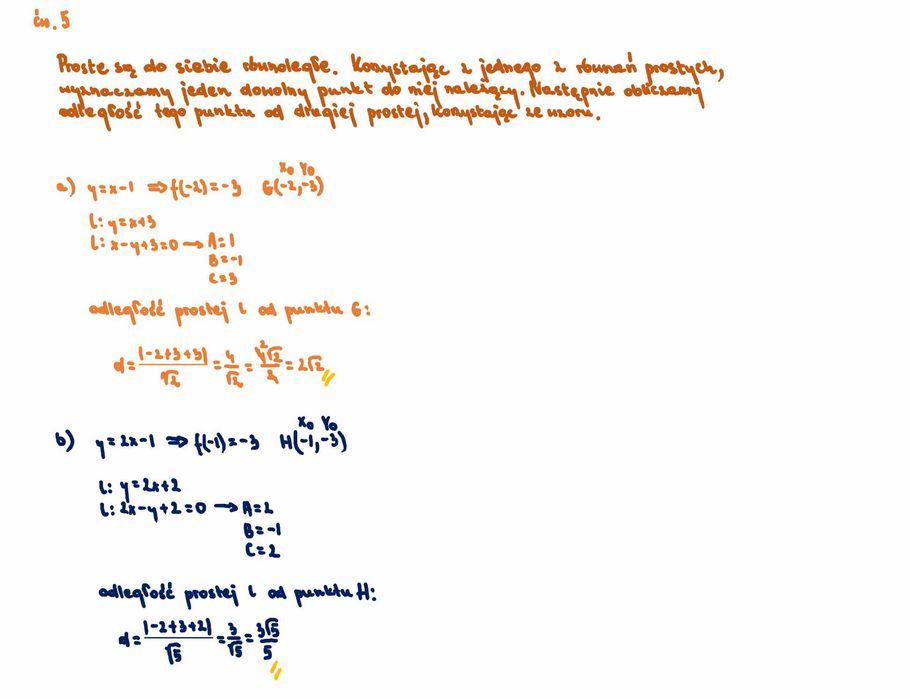 ćw. 5
Proste są do siebie równoległe. Korzystając z jednego z równań prostych,
wyznaczamy jeden dowolny punkt do niej należący. Następnie obliczamy
odległość tego punktu od drugiej prostej, korzystając ze wzoru.
x₀ y₀
a) y=x-1 ⇒ f(-2)=-3 G(-2,-3)
l: y=x+3
l: x-y+3=0 → A=1
B=-1
C=3
odległość prostej l od punktu G:
d=|-2+3+3|/√2=4/√2=4√2/2=2√2
2
x₀ y₀
b) y=2x-1 ⇒ f(-1)=-3 H(-1,-3)
l: y=2x+2
l: 2x-y+2=0 → A=2
B=-1
C=2
odległość prostej l od punktu H:
d=|-2+3+2|/√5=3/√5=3√5/5